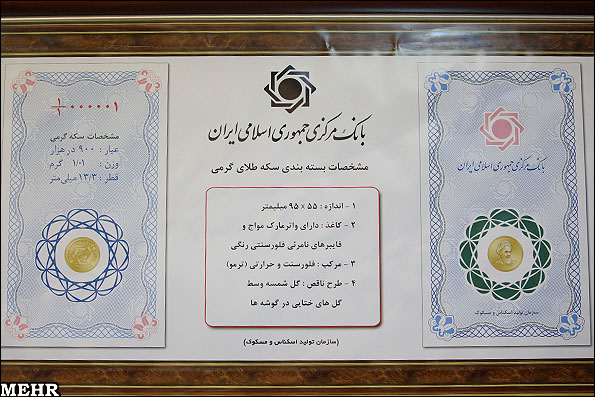 بانک مرکزی جمهوری اسلامی ایران
مشخصات بسته بندی سکه طلای گرمی
۱ - اندازه : ۵۵ × ۹۵ میلیمتر
۲ - کاغذ : دارای واترمارک مواج و
فایبرهای نامرئی فلورسنتی رنگی
۳ - مرکب : فلورسنت و حرارتی (ترمو)
۴ - طرح ناقص : گل شمسه وسط
گل های ختایی در گوشه ها
(سازمان تولید اسکناس و مسکوک)
بانک مرکزی جمهوری اسلامی ایران
سازمان تولید اسکناس و مسکوک
۱/۱ ۰۰۰۰۰۱
مشخصات سکه گرمی
عیار : ۹۰۰ در هزار
وزن : ۱/۰۱ گرم
قطر : ۱۳/۳ میلی متر
MEHR